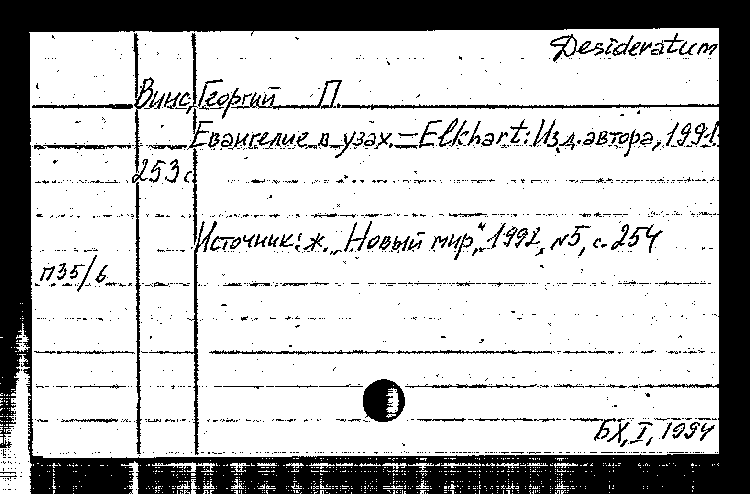 Desideratum
Винс, Георгий П.
Евангелие в узах. – Elkhart: Изд. автора, 1991.
253 с.
Источник: ж. „Новый мир“, 1992, №5, с. 254
п35/6
БХ, I, 1994